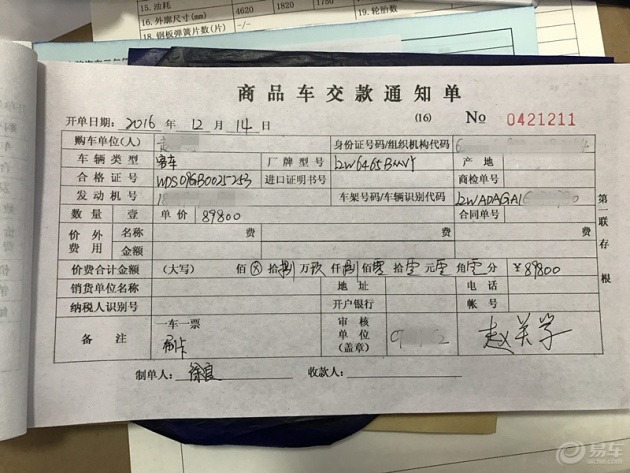 15. 油耗
16. 外廓尺寸(mm) 4620 1820 1750
18. 钢板弹簧片数(片) -/- 19. 轮胎数
商品车交款通知单
开单日期: 2016 年 12 月 14 日 (16) № 0421211
购车单位(人) 身份证号码/组织机构代码 6
车辆类型 客车 厂牌型号 产地
合格证号 进口证明书号 商检单号
发动机号 车架号码/车辆识别代码
数量 壹 单价 89800 合同单号
价外费用 名称 费 费
金额
价费合计金额 (大写) 佰 ⊗ 拾 捌 万 玖 仟 捌 佰 零 拾 元 角 分 ¥ 89800
销货单位名称 地址 电话
纳税人识别号 开户银行 帐号
备注 一车一票 刷卡 审核单位(盖章)
制单人: 徐良 收款人:
第一联存根
易车